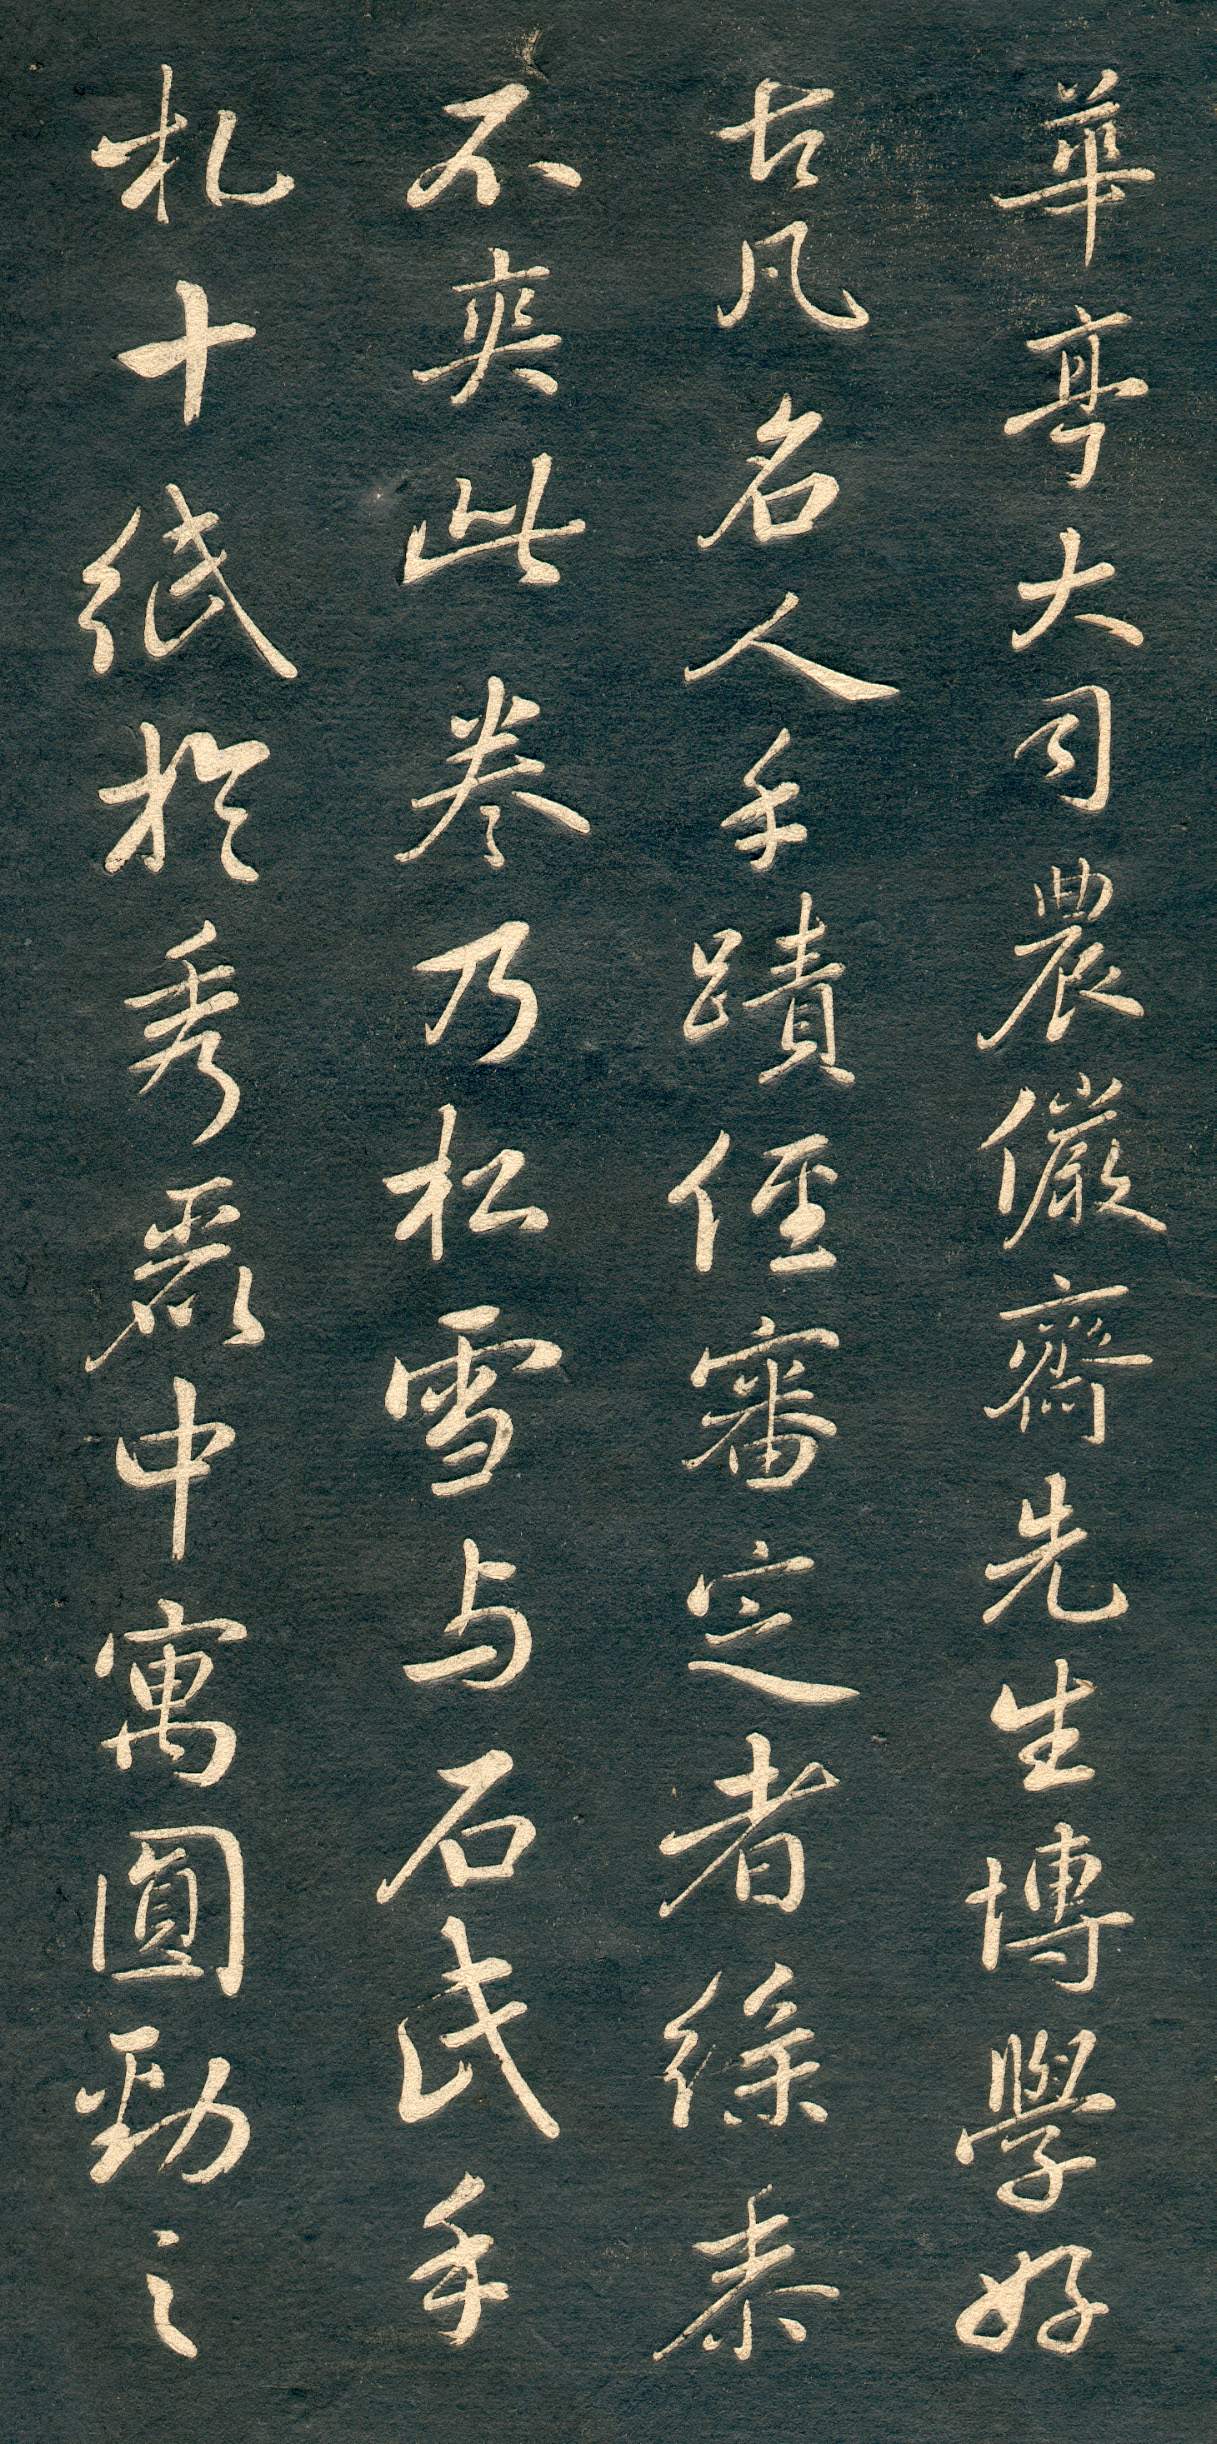 華亭大司農儼齋先生博學好
古凡名人手蹟經審定者絲忝
不爽此卷乃松雪与石民手
札十紙於秀麗中寓圓勁之